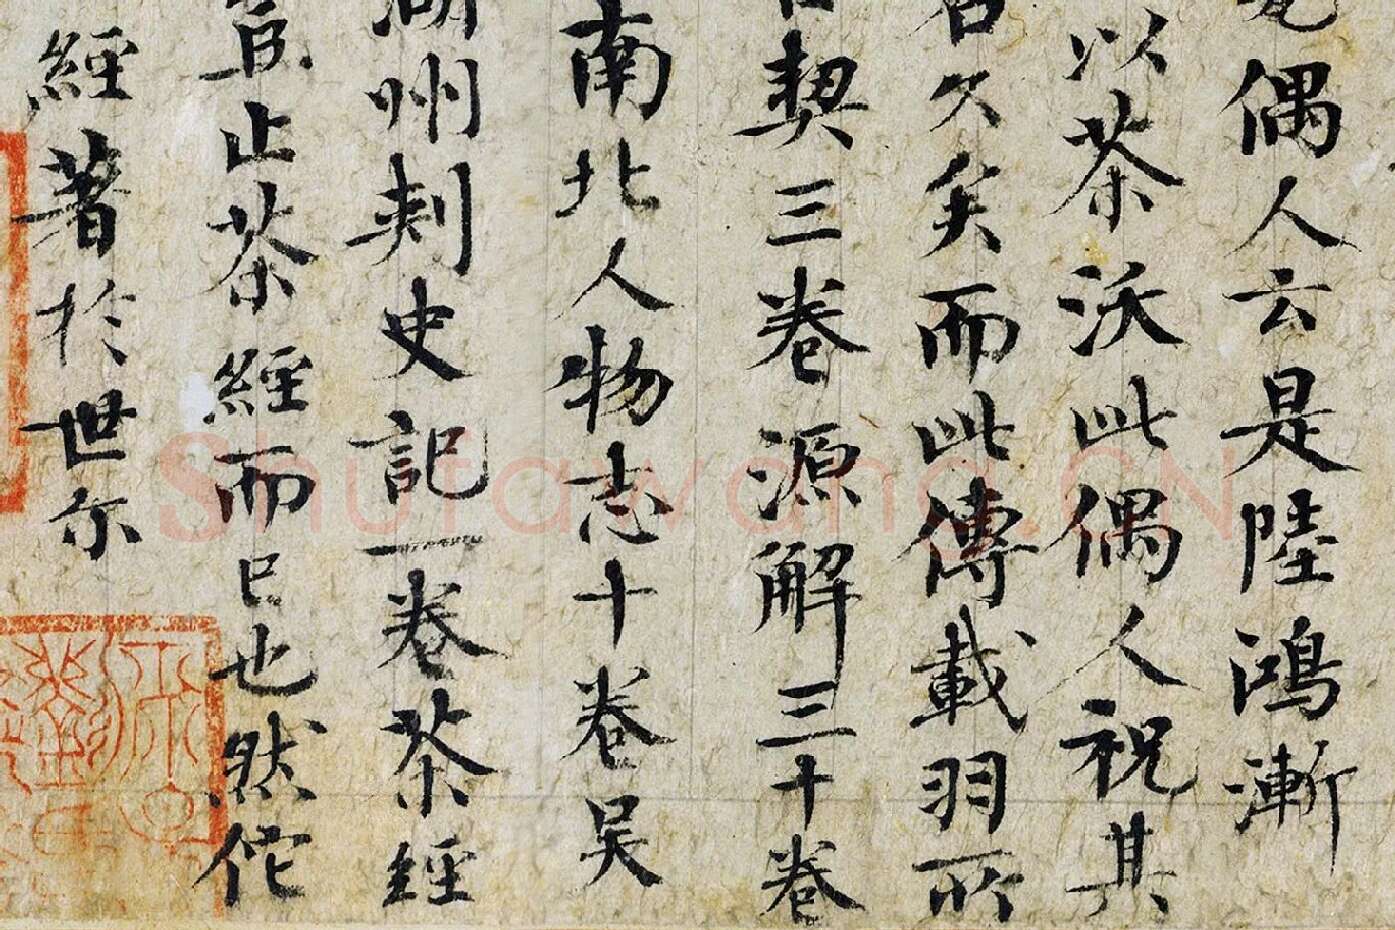 偶人云是陸鴻漸
以茶沃此偶人祝其
名久矣而此傳載羽所
契三卷源解三十卷
南北人物志十卷吳
湖州刾史記一卷茶經
止茶經而已也然佗
經著於世尓
Shufawang.CN